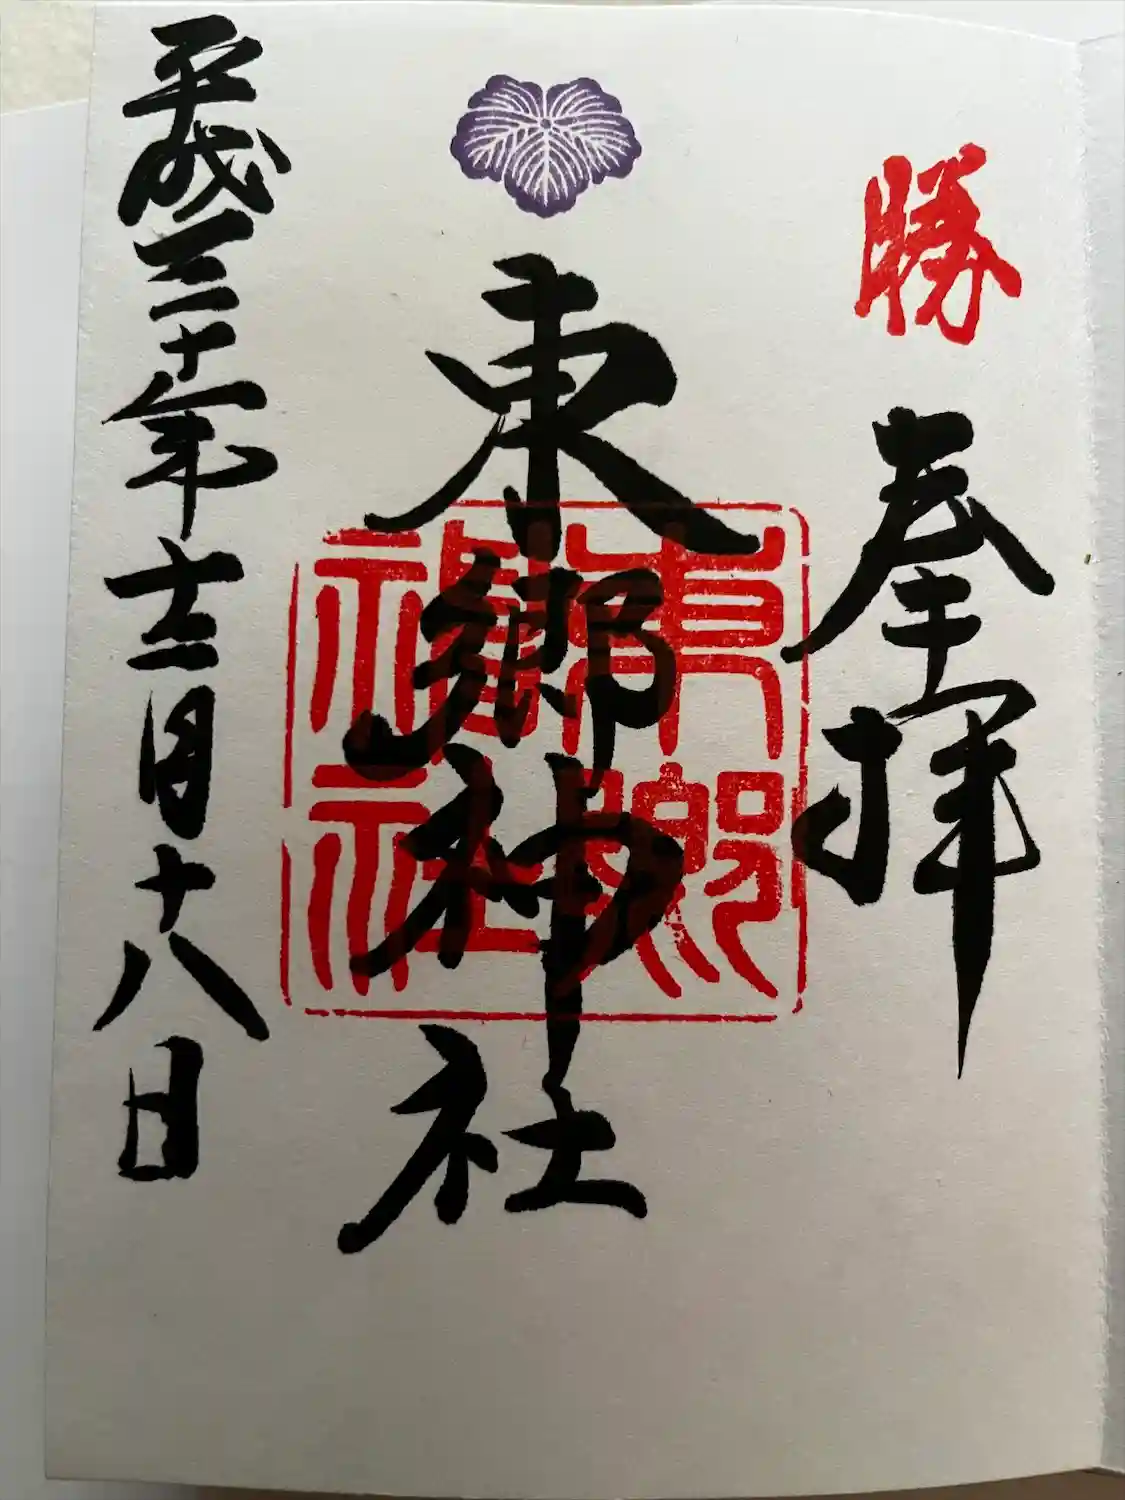 勝
奉拝
東郷神社
東郷
神社
平成三十年十二月十八日